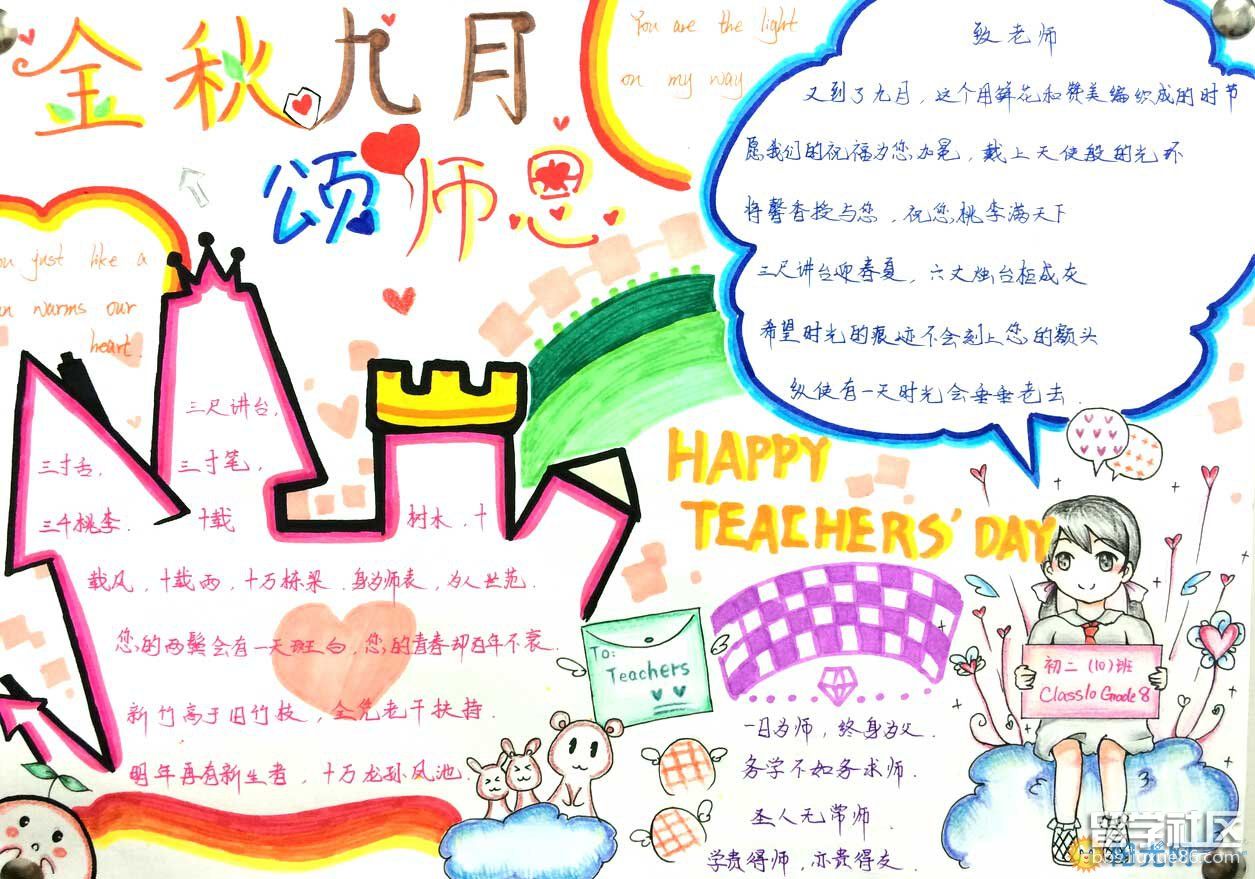 金秋九月
颂师恩
You are the light
on my way
致老师
又到了九月，这个用鲜花和赞美编织成的时节
愿我们的祝福为您加冕，戴上天使般的光环
将馨香授与您，祝您桃李满天下
三尺讲台迎春夏，六丈烛台柜成灰
希望时光的痕迹不会刻上您的额头
纵使有一天时光会垂垂老去.
ou just like a
un warms our
heart.
三尺讲台，
三寸舌， 三寸笔，
三千桃李. 十载 树木，十
载风，十载雨，十万栋梁.身为师表，为人世范.
您的两鬓会有一天斑白，您的青春却百年不衰.
新竹高于旧竹枝，全凭老干扶持.
明年再有新生者，十万龙孙凤池.
HAPPY
TEACHERS' DAY
To:
Teachers
初二(10)班
Class10 Grade8
一日为师，终身为父.
务学不如务求师.
圣人无常师.
学贵得师，亦贵得友.
留学社区